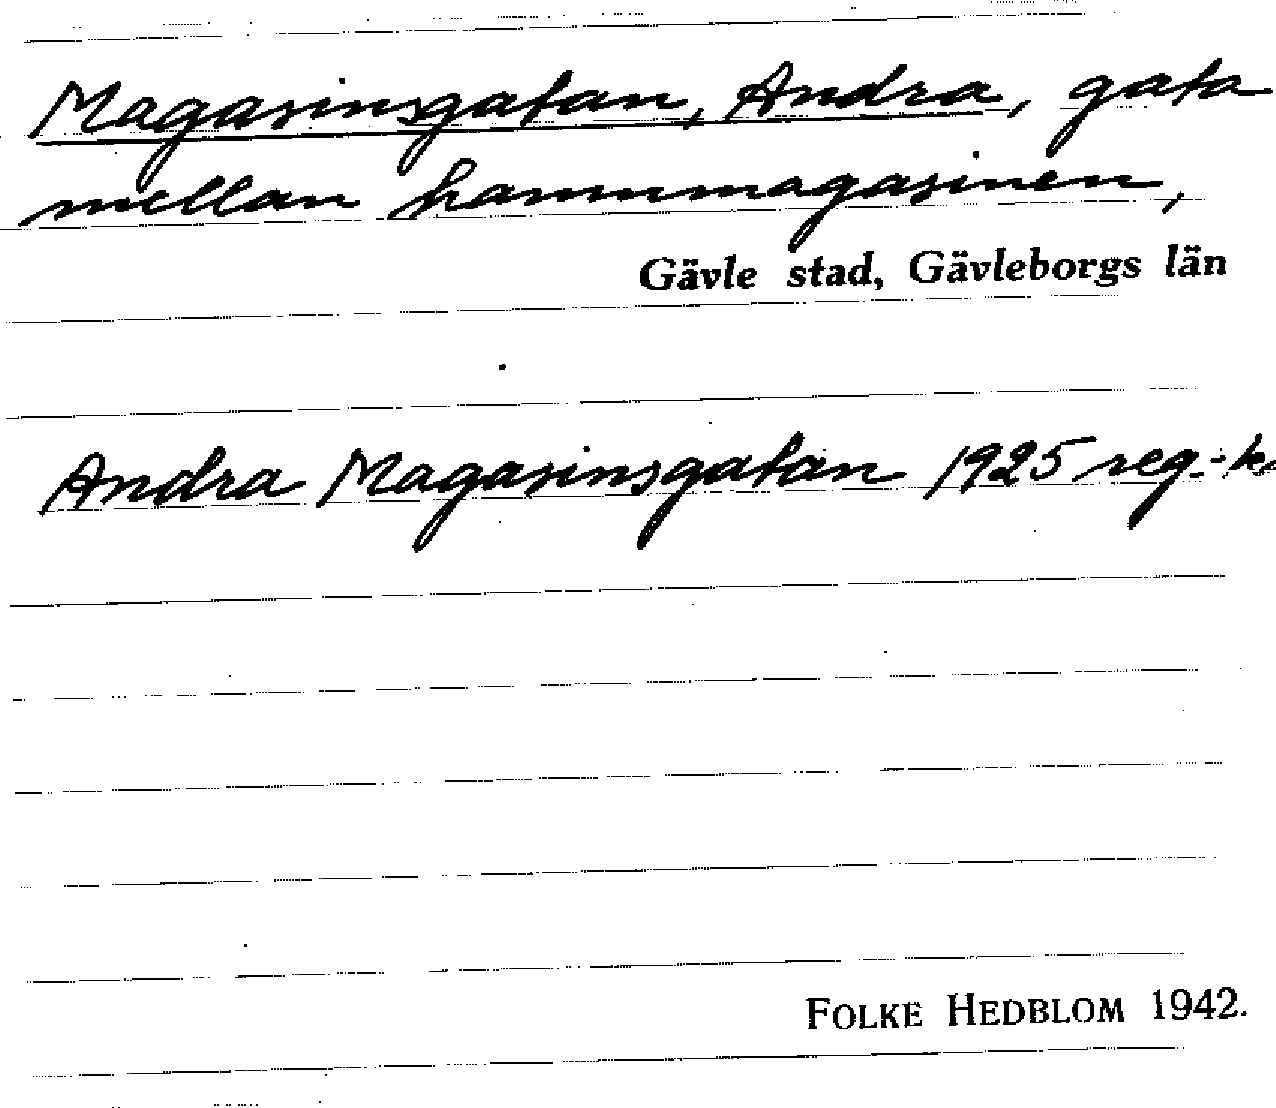 Magasinsgatan, Andra, gata
mellan hamnmagasinen,
Gävle stad, Gävleborgs län
Andra Magasinsgatan 1925 reg.-k
FOLKE HEDBLOM 1942.